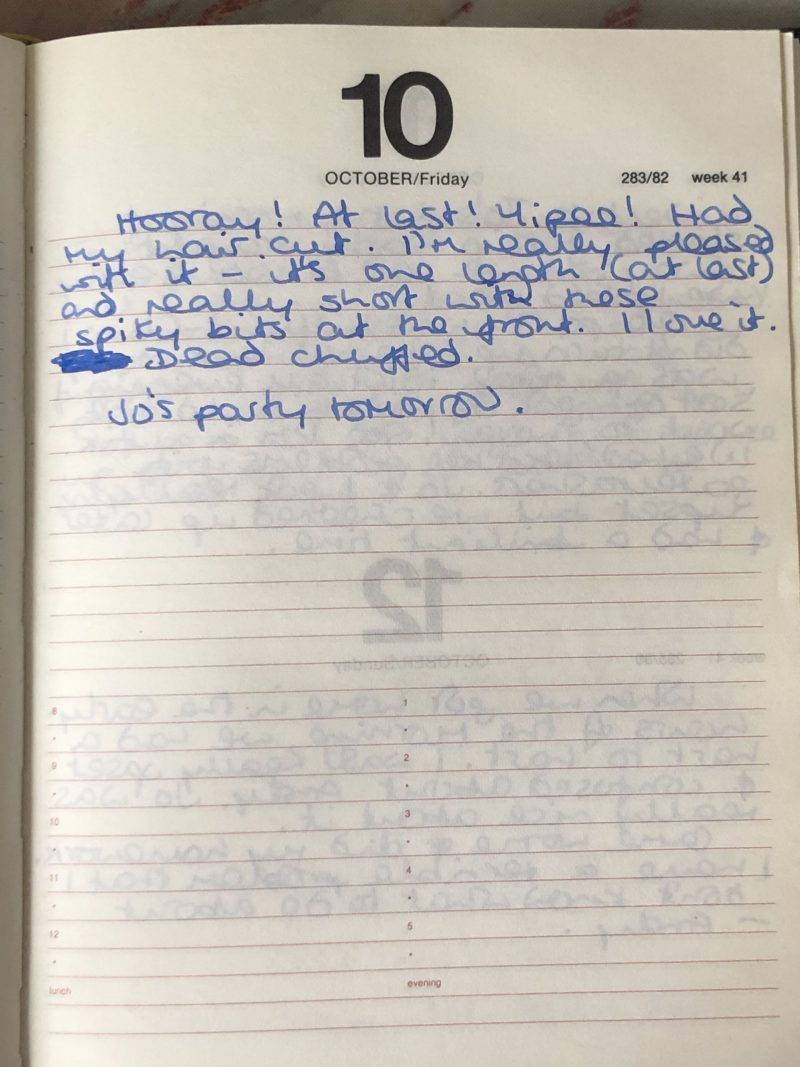 10
OCTOBER/Friday 283/82 week 41
Hooray! At last! Yipee! Had
my hair cut. I'm really pleased
with it - it's one length (at last)
and really short with these
spiky bits at the front. I love it.
Dead chuffed.
Jo's party tomorrow.
8 1
9 2
10 3
11 4
12 5
lunch evening